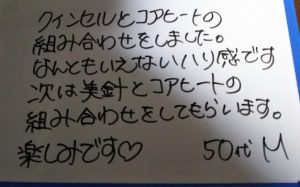 クィンセルとコアヒートの
組み合わせをしました。
なんともいえないハリ感です
次は美針とコアヒートの
組み合わせをしてもらいます。
楽しみです♡ 50代 M